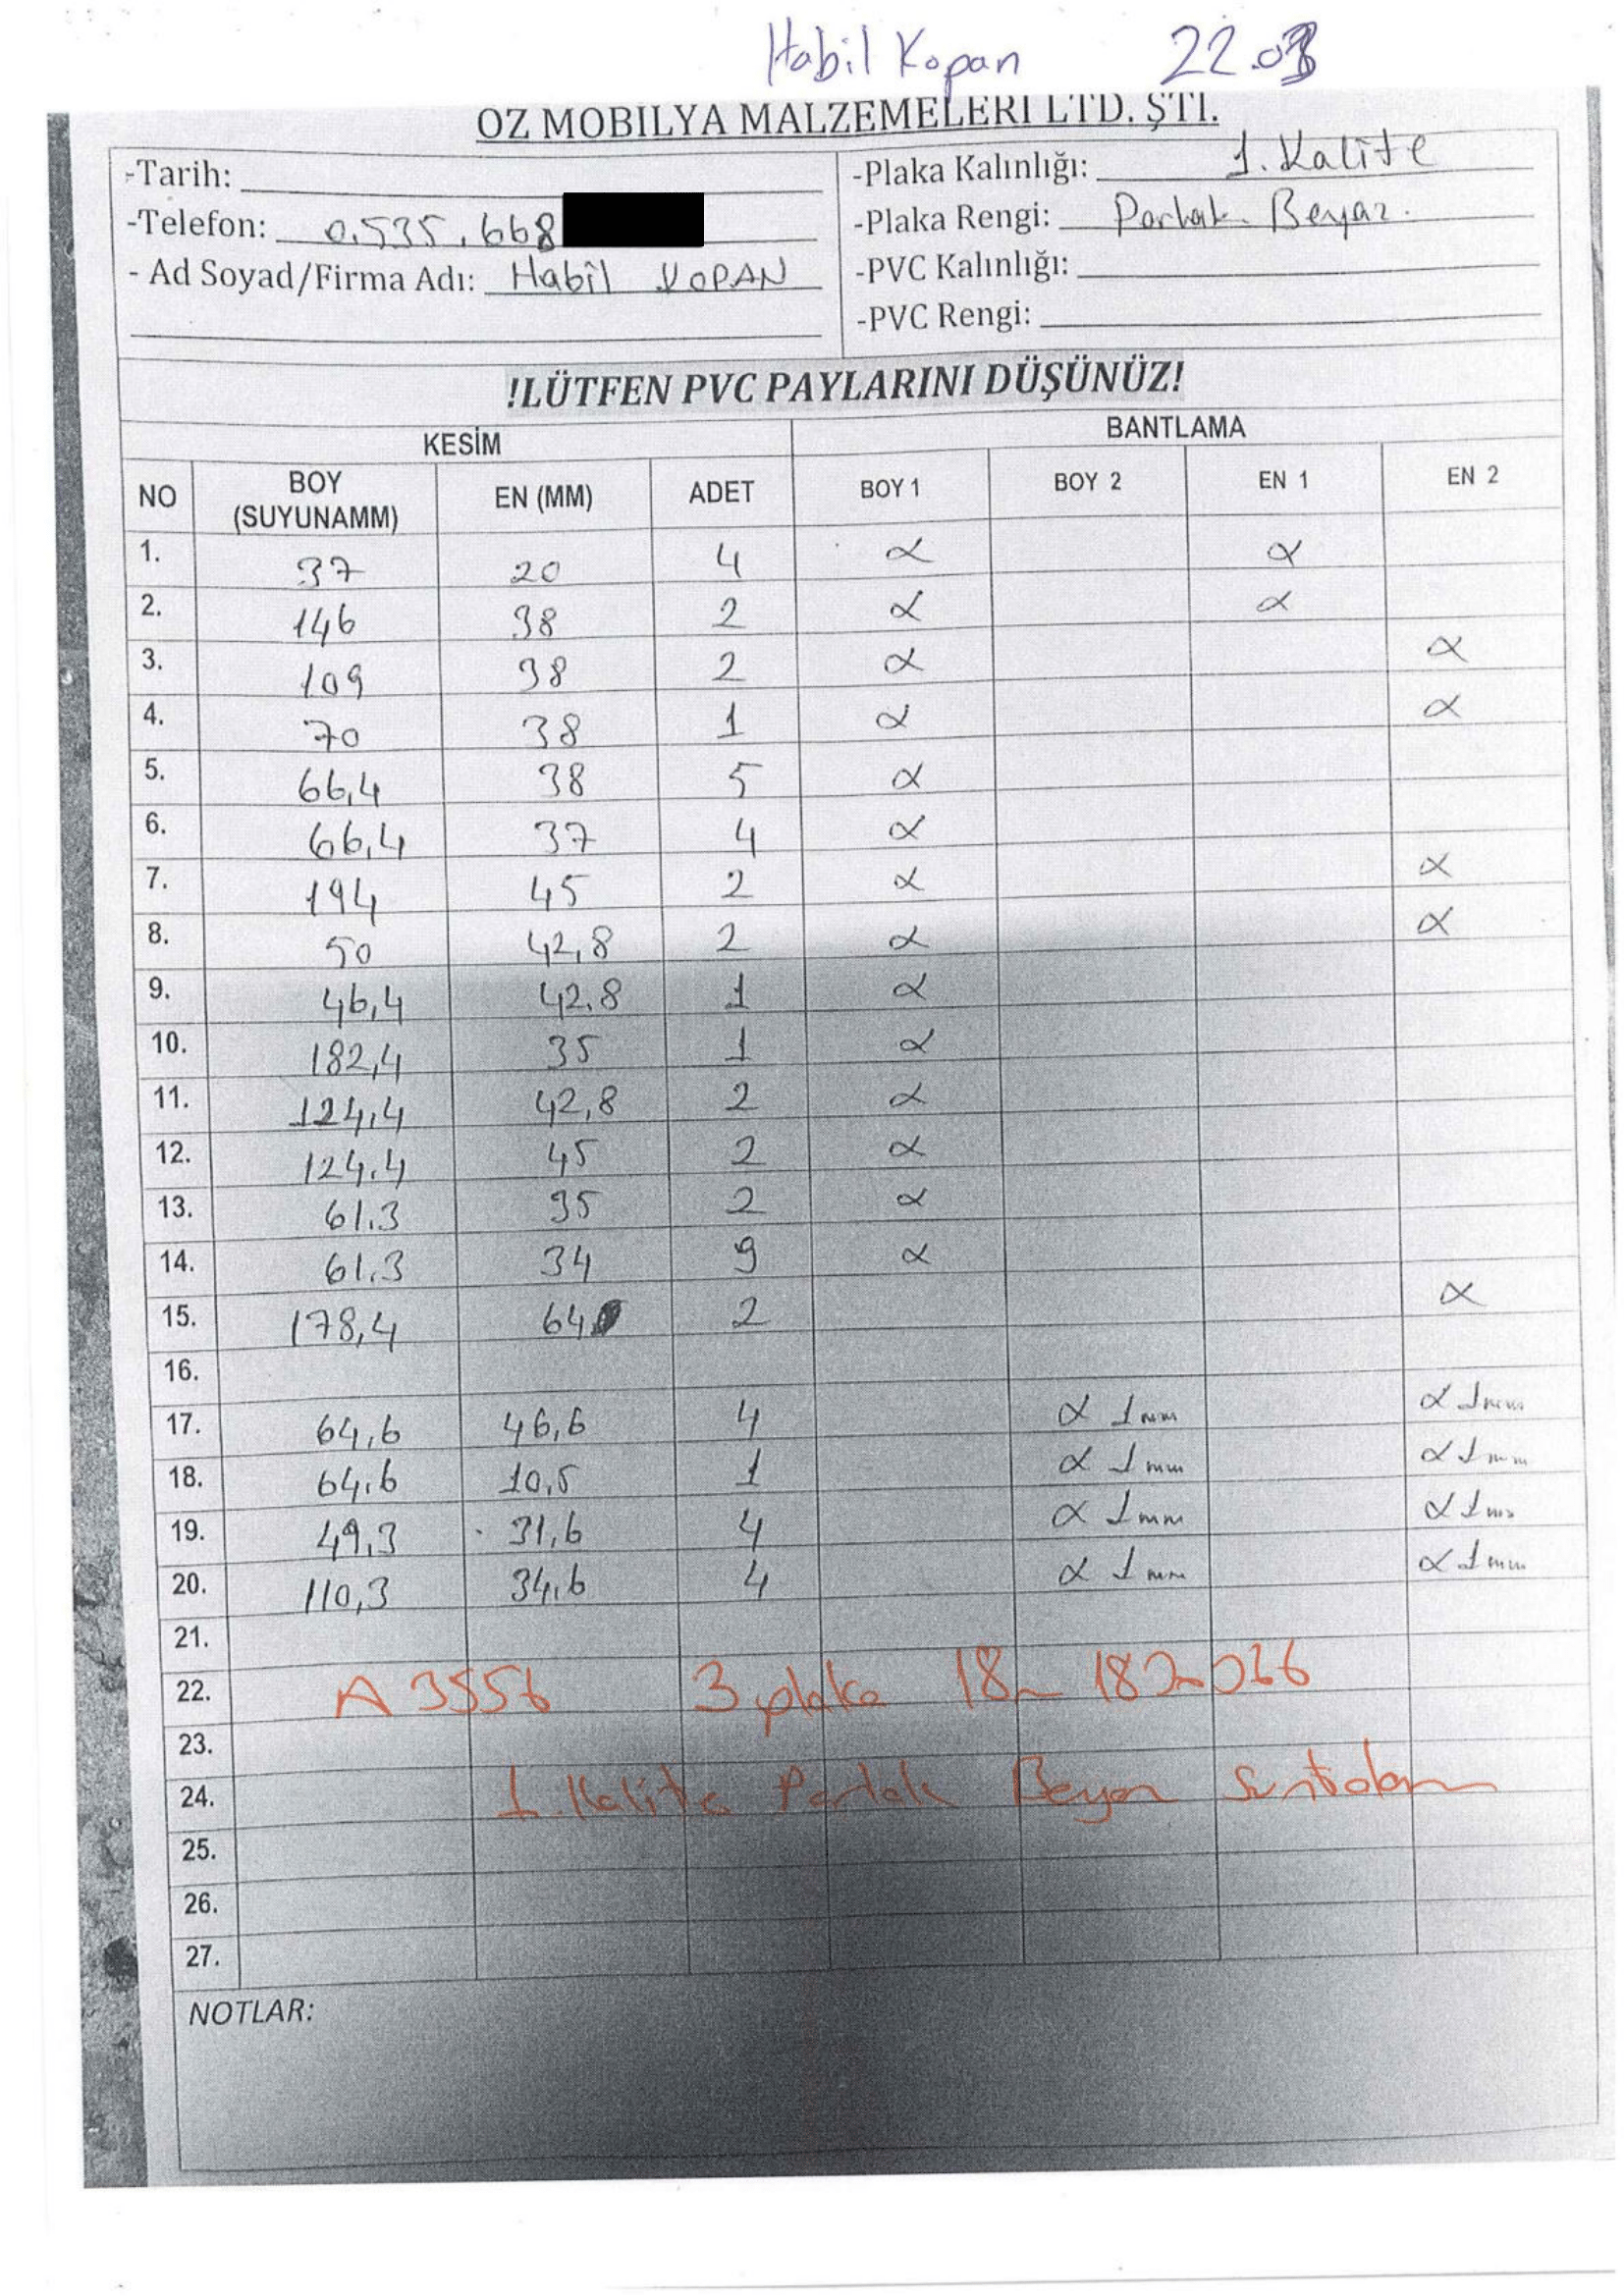 Habil Kopan 22.03
ÖZ MOBİLYA MALZEMELERİ LTD. ŞTİ.
-Tarih:
-Telefon: 0.535.668
- Ad Soyad/Firma Adı: Habil KOPAN
-Plaka Kalınlığı: 1. Kalite
-Plaka Rengi: Parlak Beyaz.
-PVC Kalınlığı:
-PVC Rengi:
!LÜTFEN PVC PAYLARINI DÜŞÜNÜZ!
KESİM BANTLAMA
NO BOY (SUYUNAMM) EN (MM) ADET BOY 1 BOY 2 EN 1 EN 2
1. 37 20 4 α α
2. 146 38 2 α α
3. 109 38 2 α α
4. 70 38 1 α α
5. 66,4 38 5 α
6. 66,4 37 4 α
7. 194 45 2 α α
8. 50 42,8 2 α α
9. 46,4 42.8 1 α
10. 182,4 35 1 α
11. 124,4 42,8 2 α
12. 124.4 45 2 α
13. 61.3 35 2 α
14. 61.3 34 9 α
15. 178,4 64 2 α
16.
17. 64,6 46,6 4 α 1mm α 1mm
18. 64.6 10,5 1 α 1mm α 1mm
19. 49,3 31,6 4 α 1mm α 1mm
20. 110,3 34,6 4 α 1mm α 1mm
21.
22. A 3556 3 plaka 18
23.
24. 1. Kalite Parlak Beyaz Suntalam
25.
26.
27.
NOTLAR: